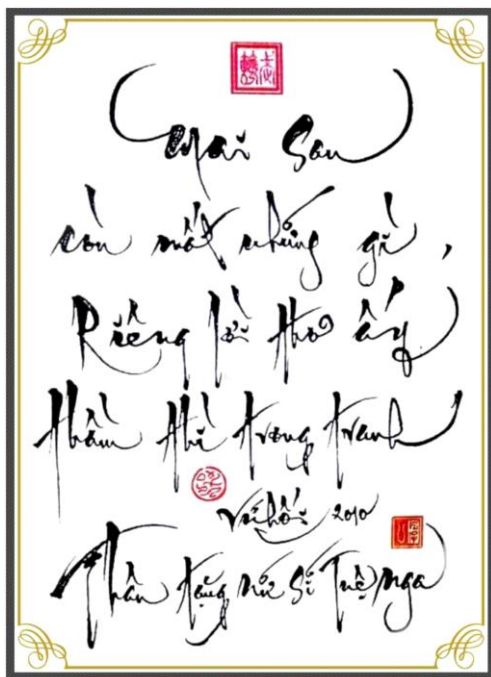 Mai Sau
còn mất những gì,
Riêng lời thơ ấy
thầm thì trong tranh
Vũ hối 2010
Thân tặng nữ sĩ Tuệ Nga